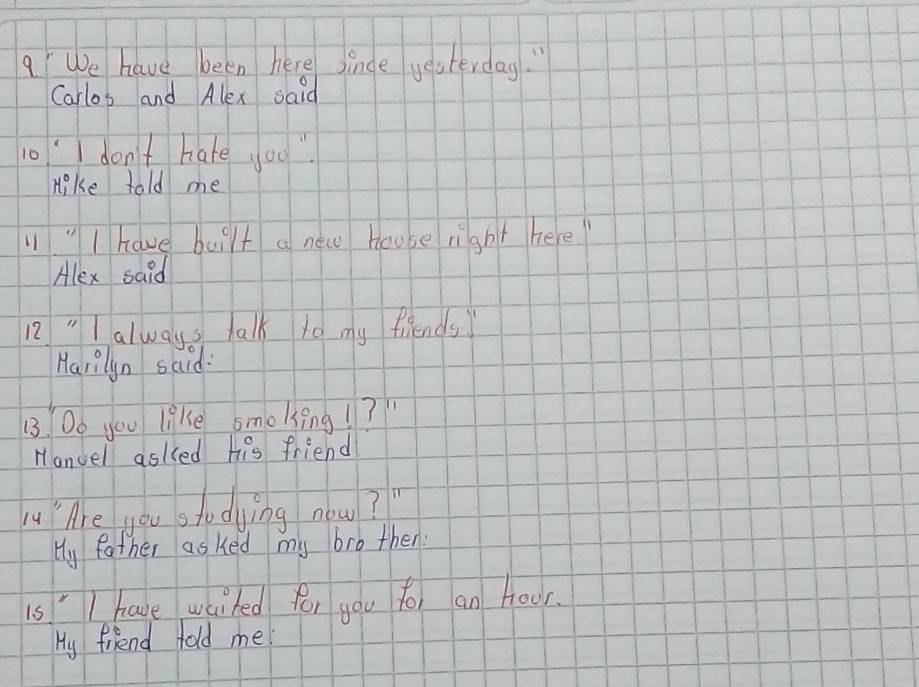 9 "We have been here sinde yesterday."
Carlos and Alex said
10 "I don't hate you".
Mike told me
11 "I have built a new house right here"
Alex said
12. "I always talk to my friends"
Marilyn said:
13. "Do you like smoking!?"
Manuel asked His friend
14 "Are you studying now?"
My father asked my brother:
15. " I have waited for you for an hour.
My friend told me: